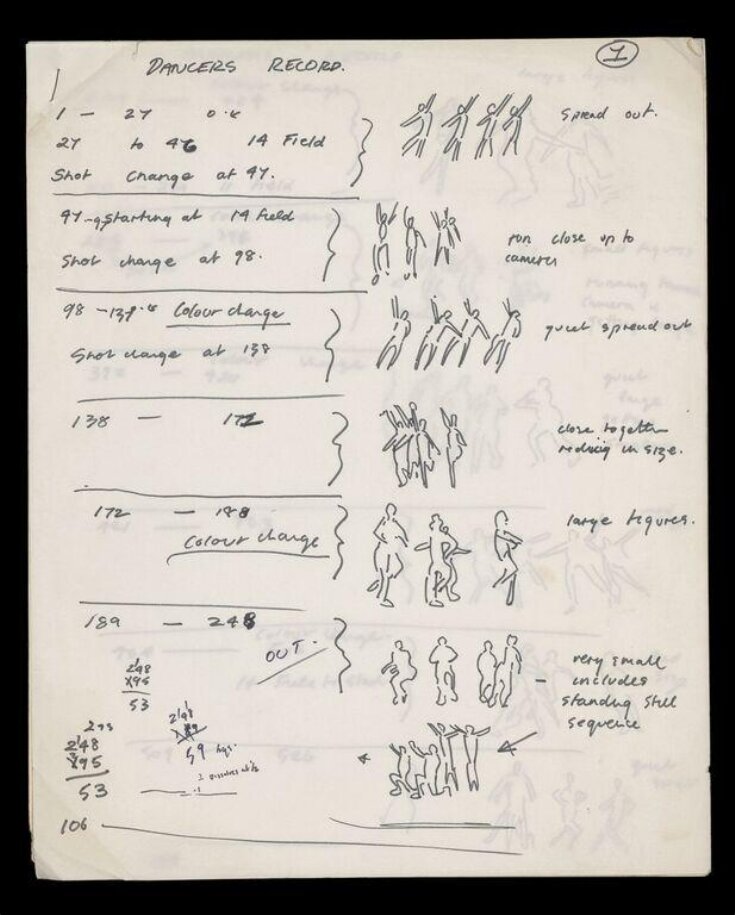 1
DANCERS RECORD.
1 — 27 o.k
27 to 46 14 Field
Shot change at 47.
Spread out.
starting at 14 field
Shot change at 98.
run close up to
camera
98 - Colour change
Shot change at 138
quiet spread out
138 — 172
close together
reducing in size.
172 — 188
Colour change
large figures.
189 — 248
OUT.
very small
includes
standing still
sequence
248
195
53
248
59
248
195
53
106